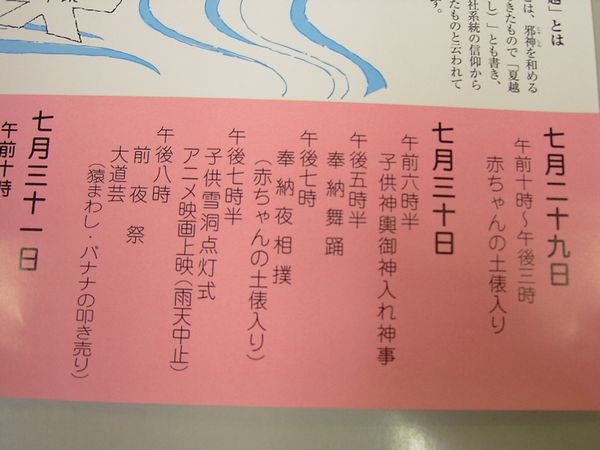 」とは
とは、邪神を和める
きたもので「夏越
し）」とも書き、
社系統の信仰から
たものと云われて
す。
七月二十九日
午前十時～午後三時
赤ちゃんの土俵入り
七月三十日
午前六時半
子供神輿御神入れ神事
午後五時半
奉納舞踊
午後七時
奉納夜相撲
（赤ちゃんの土俵入り）
午後七時半
子供雪洞点灯式
アニメ映画上映（雨天中止）
午後八時
前夜祭
大道芸
（猿まわし・バナナの叩き売り）
七月三十一日
午前十時